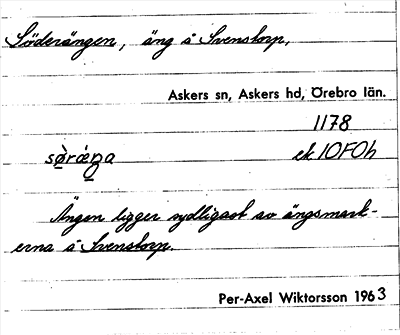 Söderängen, äng å Svenstorp,
Askers sn, Askers hd, Örebro län.
1178
ek 10F0h
Ängen ligger sydligast av ängsmark-
erna å Svenstorp.
Per-Axel Wiktorsson 1963